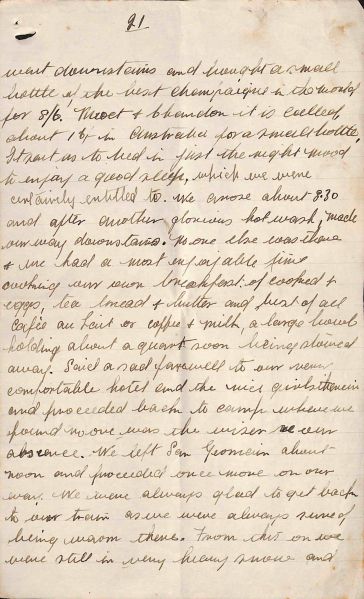 21
went downstairs and bought a small
bottle of the best champaigne in the world
for 8/6. Moet & Chandon it is called,
about 1£ in Australia for a small bottle,
It sent us to bed in just the right mood
to enjoy a good sleep, which we were
certainly entitled to. We arose about 8.30
and after another glorious hot wash, made
our way downstairs. No one else was there
& we had a most enjoyable time
cooking our own breakfast. of cooked
eggs, tea bread & butter and best of all
Cafée au Lait or coffee & milk, a large bowl
holding about a quart soon being stowed
away. Said a sad farewell to our very
comfortable hotel and the nice girls therein
and proceeded back to camp where we
found no one was the wiser re our
absence. We left San Germain about
noon and proceeded once more on our
way. We were always glad to get back
to our train as we were always sure of
being warm there. From this on we
were still in very heavy snow and